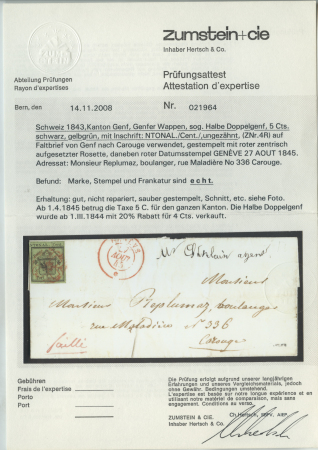 zumstein+cie
Inhaber Hertsch & Co.
Abteilung Prüfungen
Rayon d'expertises
Prüfungsattest
Attestation d'expertise
Bern, den 14.11.2008 Nr. 021964
Schweiz 1843,Kanton Genf, Genfer Wappen, sog. Halbe Doppelgenf, 5 Cts.
schwarz, gelbgrün, mit Inschrift: NTONAL./Cent./,ungezähnt, (ZNr.4R) auf
Faltbrief von Genf nach Carouge verwendet, gestempelt mit roter zentrisch
aufgesetzter Rosette, daneben roter Datumsstempel GENÈVE 27 AOUT 1845.
Adressat: Monsieur Replumaz, boulanger, rue Maladière No 336 Carouge.
Befund: Marke, Stempel und Frankatur sind e c h t.
Erhaltung: gut, nicht repariert, sauber gestempelt, Schnitt, etc. siehe Foto.
Ab 1.4.1845 betrug die Taxe 5 C. für den ganzen Kanton. Die Halbe Doppelgenf
wurde ab 1.III.1844 mit 20% Rabatt für 4 Cts. verkauft.
Monsieur
Monsieur Replumaz, boulanger
rue Maladière N° 336
Carouge
Gebühren
Frais de l'expertise
Porto
Port
Die Prüfung erfolgt aufgrund unserer langjährigen
Erfahrungen und unseres Vergleichsmaterials, jedoch
ohne Gewähr. Bedingungen umstehend.
L'expertise est basée sur notre longue expérience et en
utilisant notre matériel de comparaison, mais sans
engagement. Conditions au verso.
ZUMSTEIN & CIE.
Inhaber Hertsch & Co.